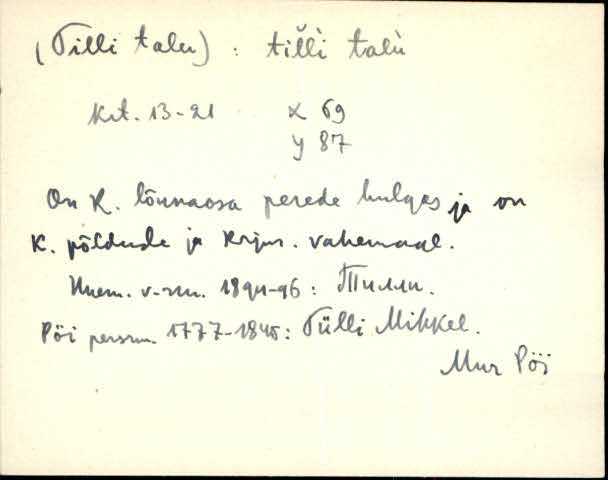 (Tilli talu) : til̀̆li talù
Kat. 13-21 X 69
Y 87
On K. lõunaosa perede hulgas ja on
K. põldude ja Krjus. vahemaal.
Имем. v-rm. 1894-96: Тилли.
Pöi persrm. 1777-1845: Tülli Mihkel.
Mur Pöi